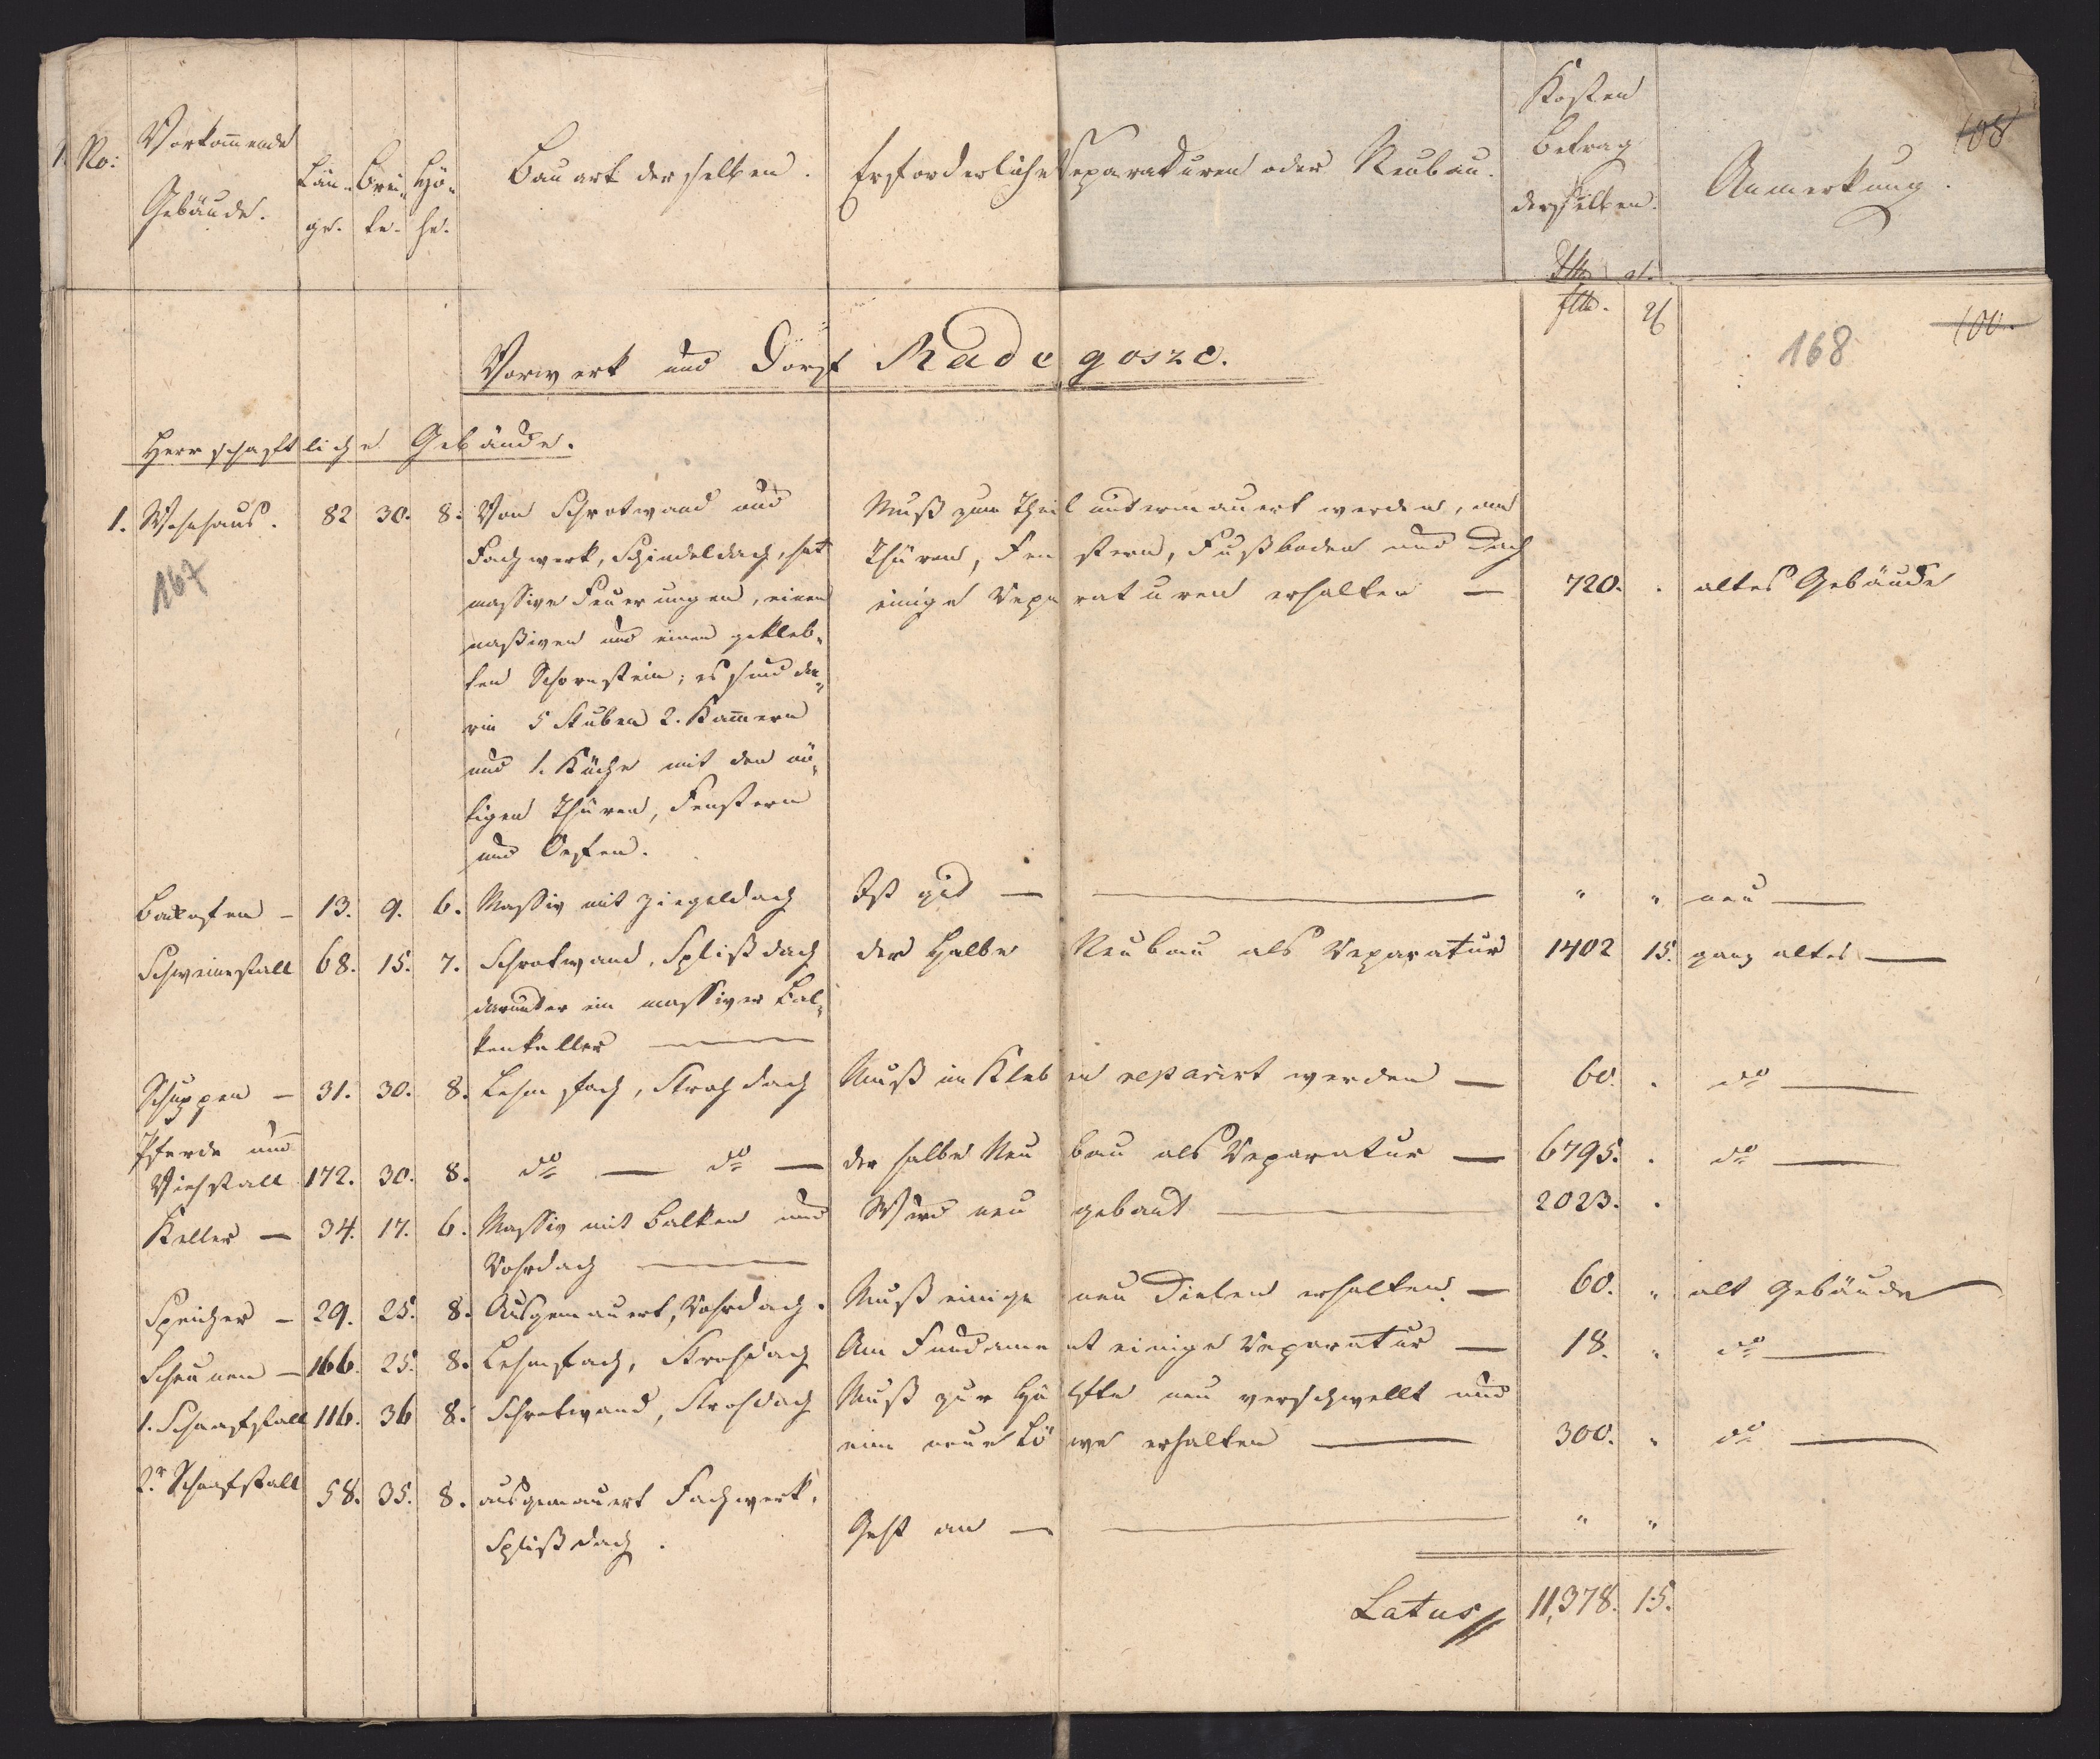 No: Vorkom̅ende Gebäude. Län- ge. Brei- te. Hö- he. Bauart derselben. Erforderliche Reparaturen oder Neubau. Kosten Betrag derselben. Anmerkung.
108
fl. 
168
100.
Vorwerk und Dorf Radegosze.
Herrschaftliche Gebäude.
1. Wohnhaus. 82 30. 8. Von Schrotwand und Muß zum Theil untermauert werden, an
Fachwerk, Schindeldach, hat Thüren, Fenstern, Fußboden und Dach
167
massive Feuerungen, einen einige Reparaturen erhalten — 720. . altes Gebäude
maßiven und einen gekleb-
ten Schornstein; es sind da-
rin 5 Stuben 2. Kam̅ern
und 1. Küche mit den nö-
tigen Thüren, Fenstern
und Oefen.
Backofen — 13. 9. 6. Massiv mit Ziegeldach Ist gut — — " " neu —
Schweinestall 68. 15. 7. Schrotwand, Splißdach der Halbe Neubau als Reparatur 1402 15. ganz altes —
darunter ein massiver Bal-
kenkeller —
Schuppen — 31. 30. 8. Lehmfach, Strohdach Muß im Kleben reparirt werden — 60. . do —
Pferde und
Viehstall 172. 30. 8. do — do — der halbe Neubau als Reparatur — 6795. . do —
Keller — 34. 17. 6. Massiv mit Balken und Wird neu gebaut — 2023. .
Rohrdach —
Speicher — 29. 25. 8. Ausgemauert, Rohrdach. Muß einige neu Dielen erhalten. — 60. " alt Gebäude
Scheunen — 166. 25. 8. Lehmfach, Strohdach Am Fundament einige Reparatur — 18. " do —
1. Schaafstall 116. 36 8. Schrotwand, Strohdach Muß zur Hälfte neu verschwellt und
eine neue erhalten — 300. " do —
2.r Schaafstall 58. 35. 8. ausgemauert Fachwerk,
Splißdach. Geht an — — " "
Latus 11,378. 15.